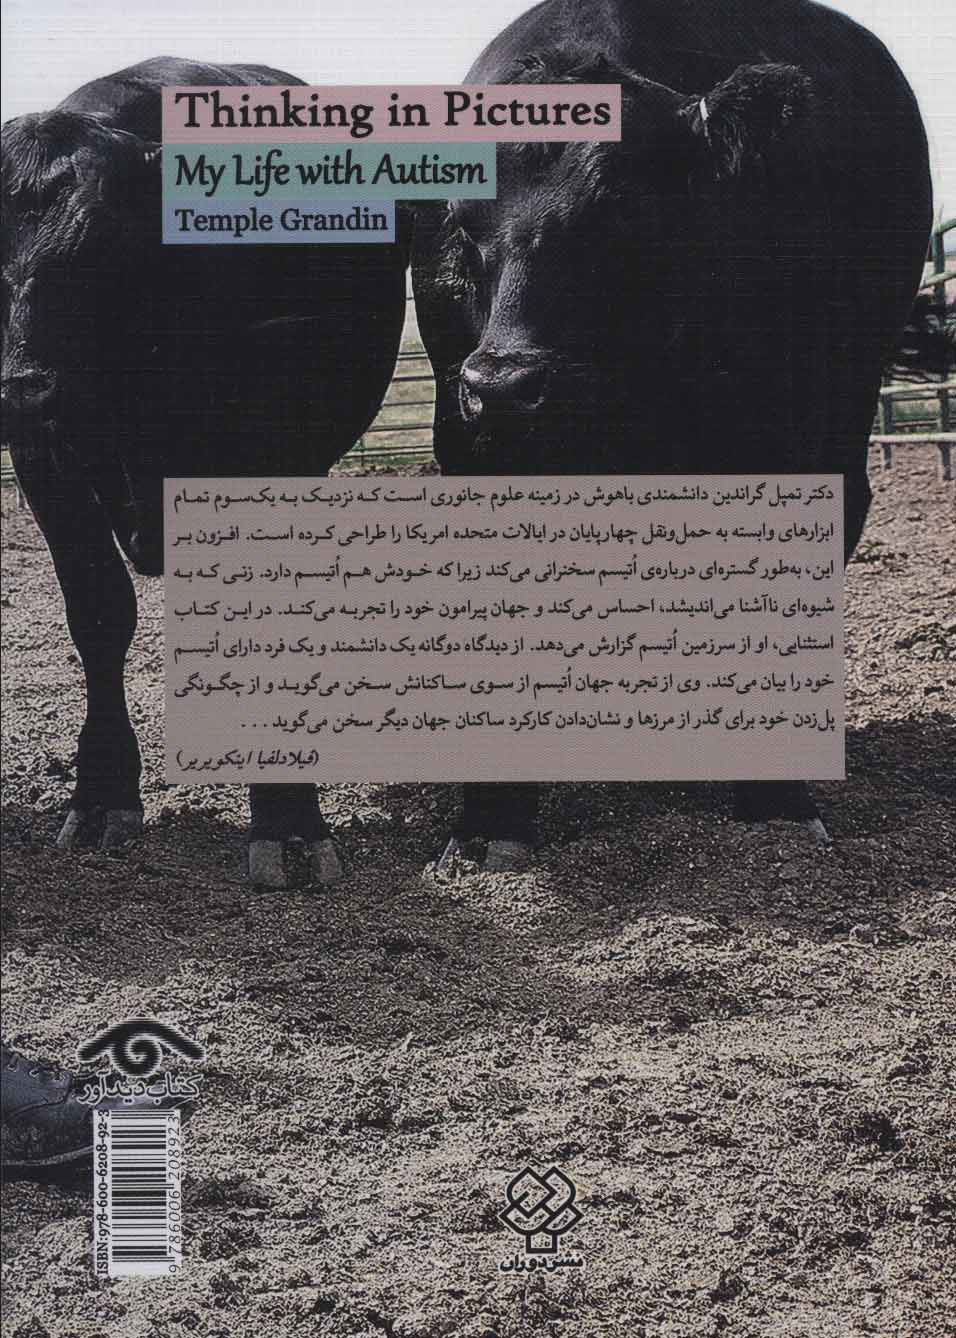 Thinking in Pictures
My Life with Autism
Temple Grandin
دکتر تمپل گراندین دانشمندی باهوش در زمینه علوم جانوری است که نزدیک به یک‌سوم تمام
ابزارهای وابسته به حمل‌ونقل چهارپایان در ایالات متحده امریکا را طراحی کرده است. افزون بر
این، به‌طور گستره‌ای درباره‌ی اُتیسم سخنرانی می‌کند زیرا که خودش هم اُتیسم دارد. زنی که به
شیوه‌ای ناآشنا می‌اندیشد، احساس می‌کند و جهان پیرامون خود را تجربه می‌کند. در این کتاب
استثنایی، او از سرزمین اُتیسم گزارش می‌دهد. از دیدگاه دوگانه یک دانشمند و یک فرد دارای اُتیسم
خود را بیان می‌کند. وی از تجربه جهان اُتیسم از سوی ساکنانش سخن می‌گوید و از چگونگی
پل‌زدن خود برای گذر از مرزها و نشان‌دادن کارکرد ساکنان جهان دیگر سخن می‌گوید . . .
(فیلادلفیا اینکویریر)
کتاب دیدآور
ISBN:978-600-6208-92-3
9786006208923
نشر دوران